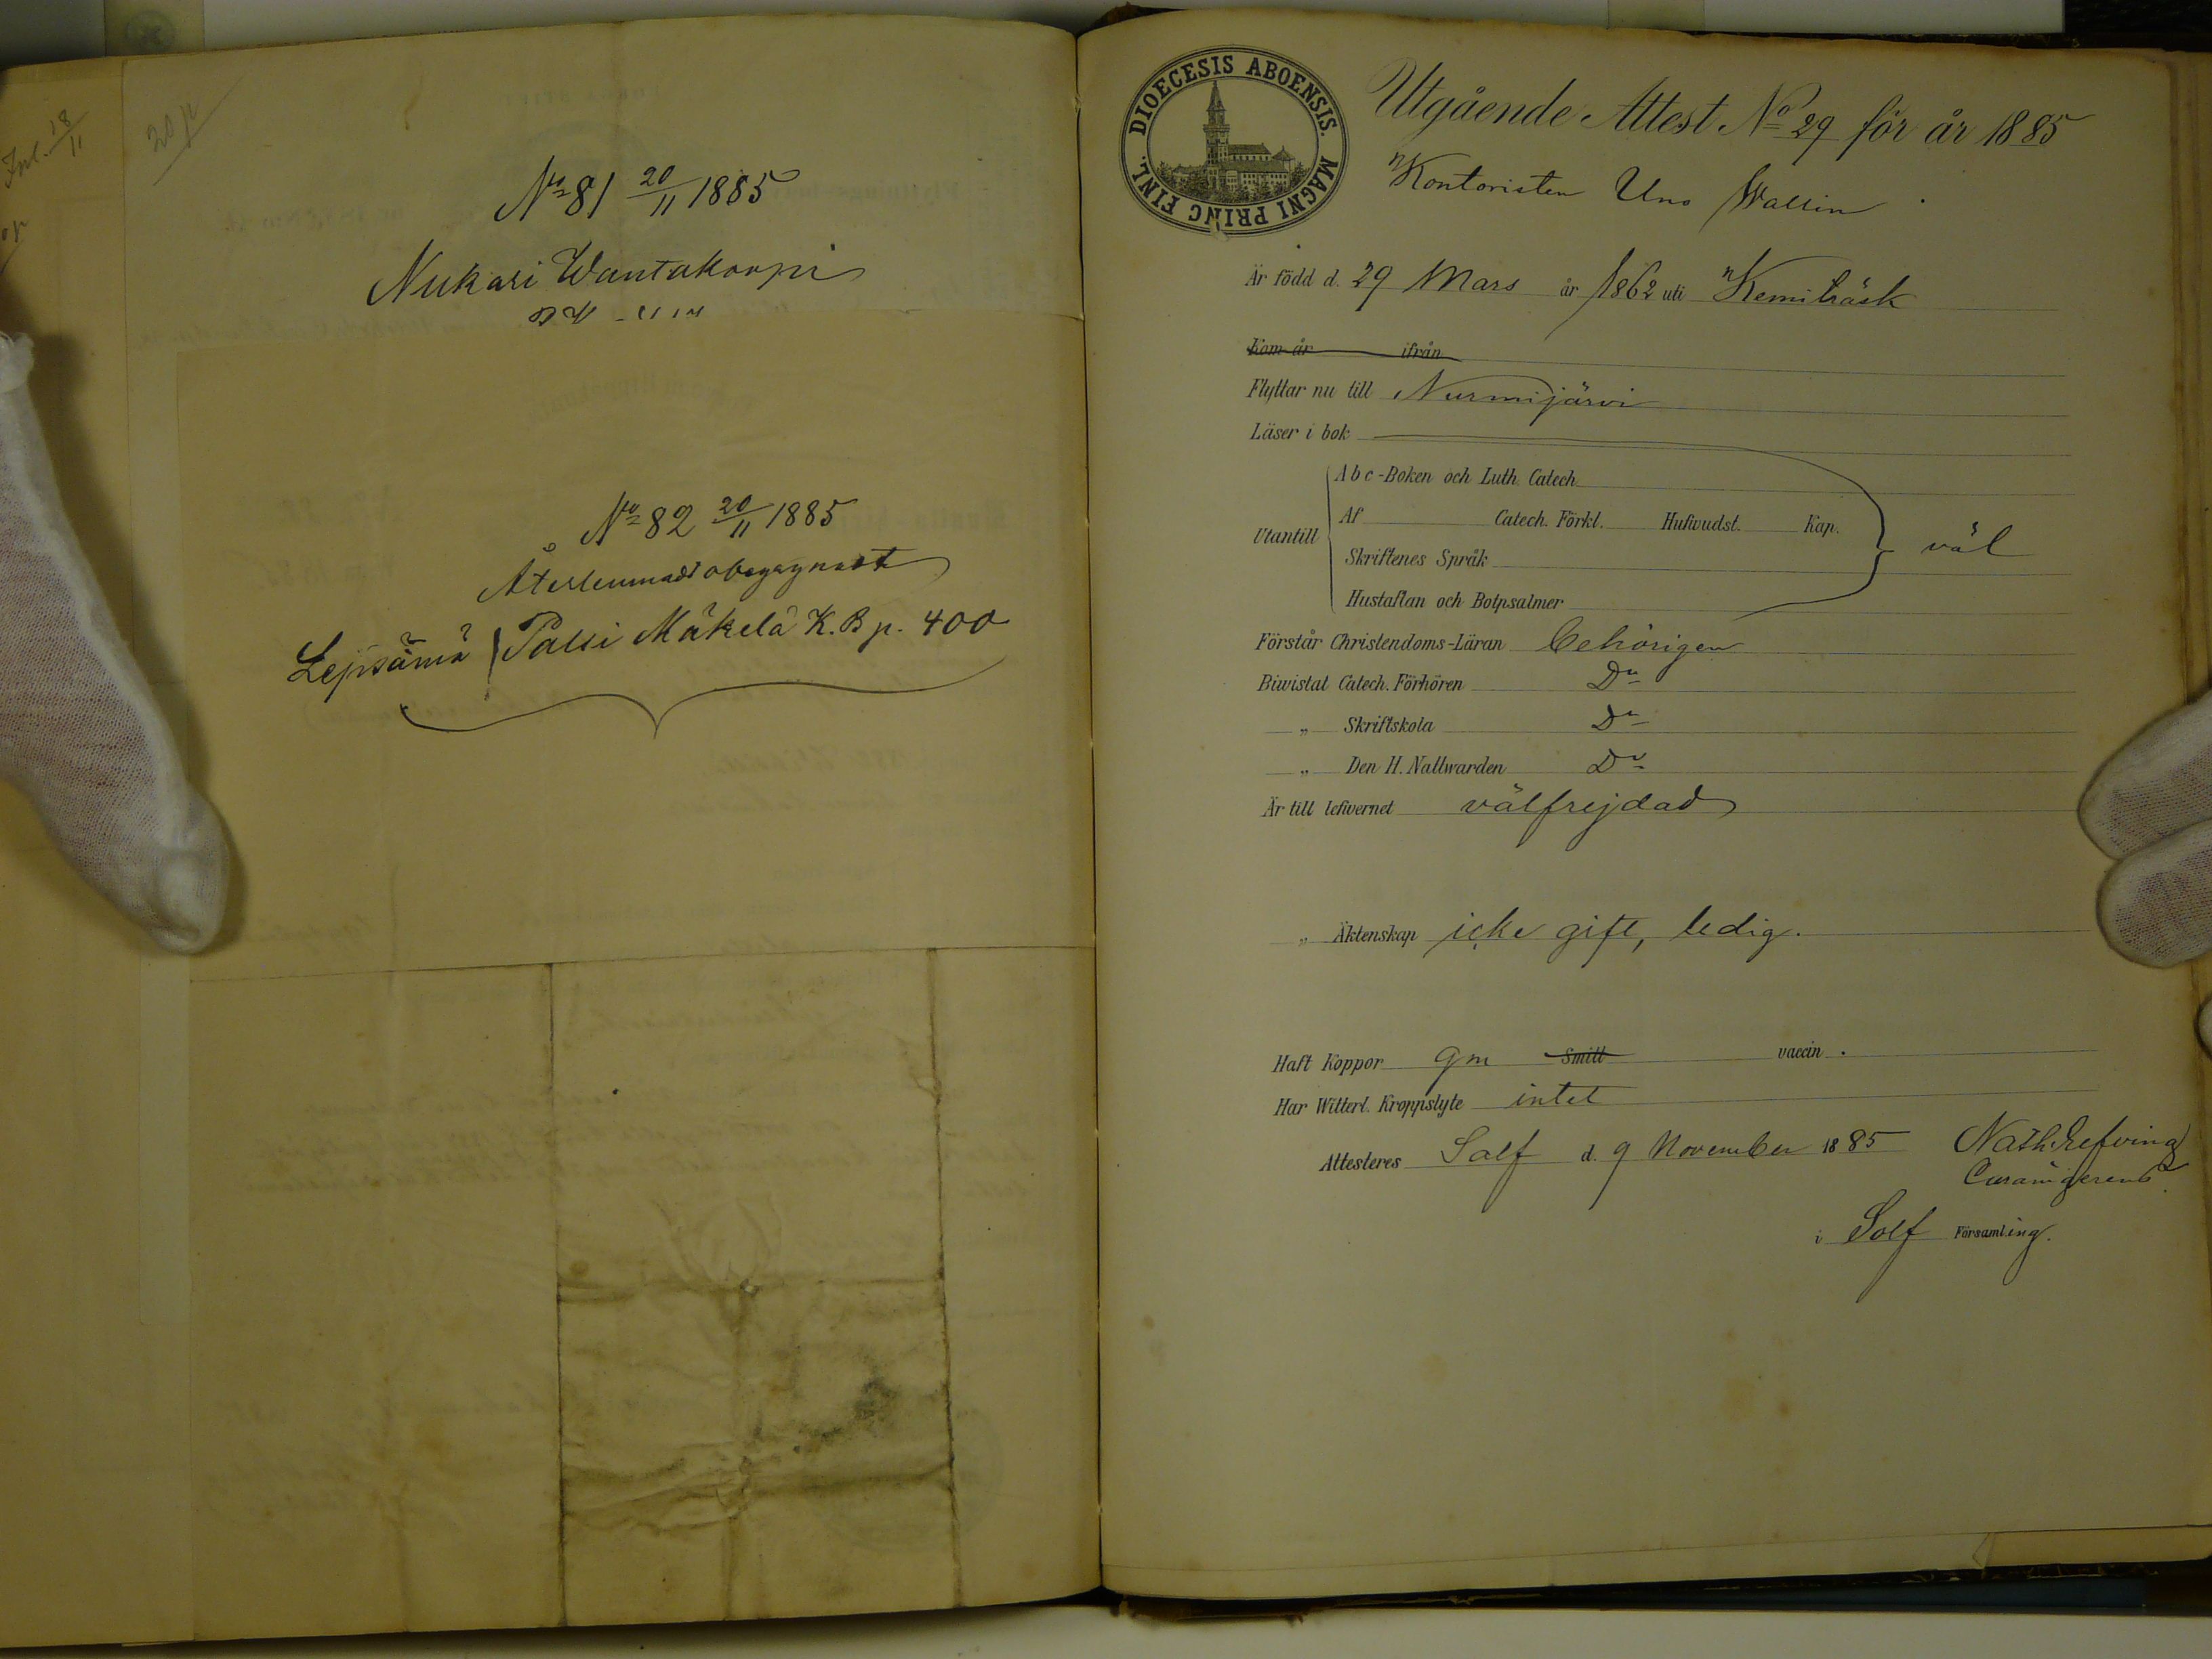 Inl. 18/11
20 p
No 81 20/11 1885
Nukari Wantakorpi
No 82 20/11 1885
Återlemnadt obegagnadt
Lepsämä Palsi Mäkelä K.B p. 400
DIOECESIS ABOENSIS. MAGNI PRINC FINL.
Utgående Attest No 29 för år 1885
Kontoristen Uno Wallin
Är född d. 29 Mars år 1862 uti Kemiträsk
Kom år ifrån
Flyttar nu till Nurmijärvi
Läser i bok
Abc-Boken och Luth. Catech.
Utantill
Af Catech. Förkl. Hufwudst. Kap.
väl
Skriftenes Språk
Hustaflan och Botpsalmer
Förstår Christendoms-Läran behörigen
Biwistat Catech. Förhören Do
„ Skriftskola Do
„ Den H. Nattwarden Do
Är till lefwernet välfrejdad
„ Äktenskap icke gift, ledig.
Haft Koppor gm Smitt vaccin.
Har Witterl. Kroppslyte intet
Attesteres Solf d. 9 November 1885 Nath. Refving
Curam gerens
i Solf Församling.